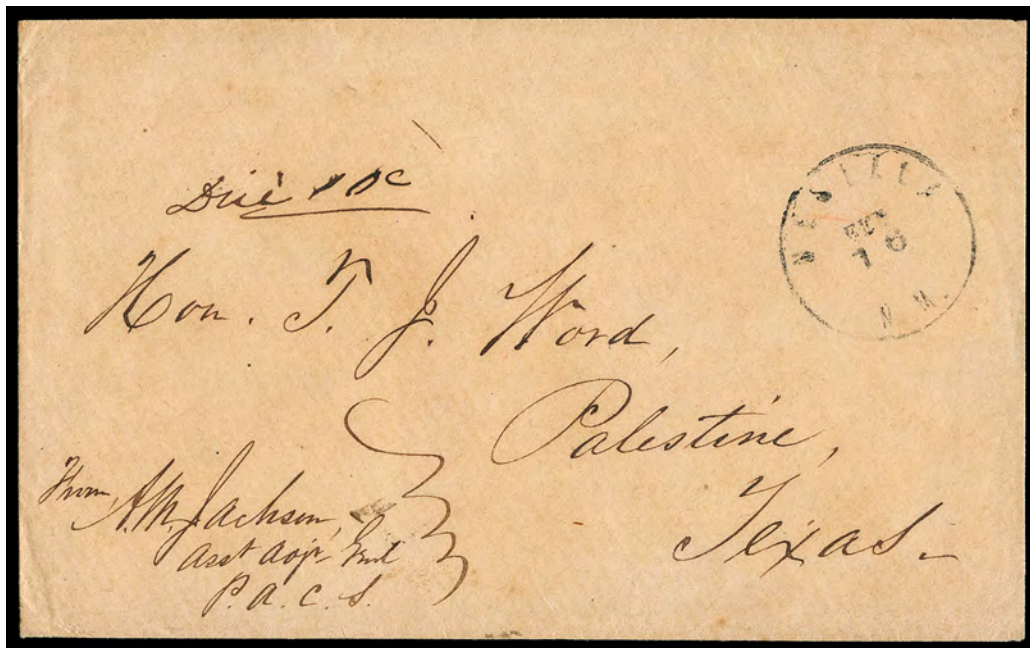 Due 10c
MESILLA
16
N. M.
Hon. T. J. Word,
Palestine,
Texas.
From, A.M. Jackson,
Asst Adjt Genl
P. A. C. S.